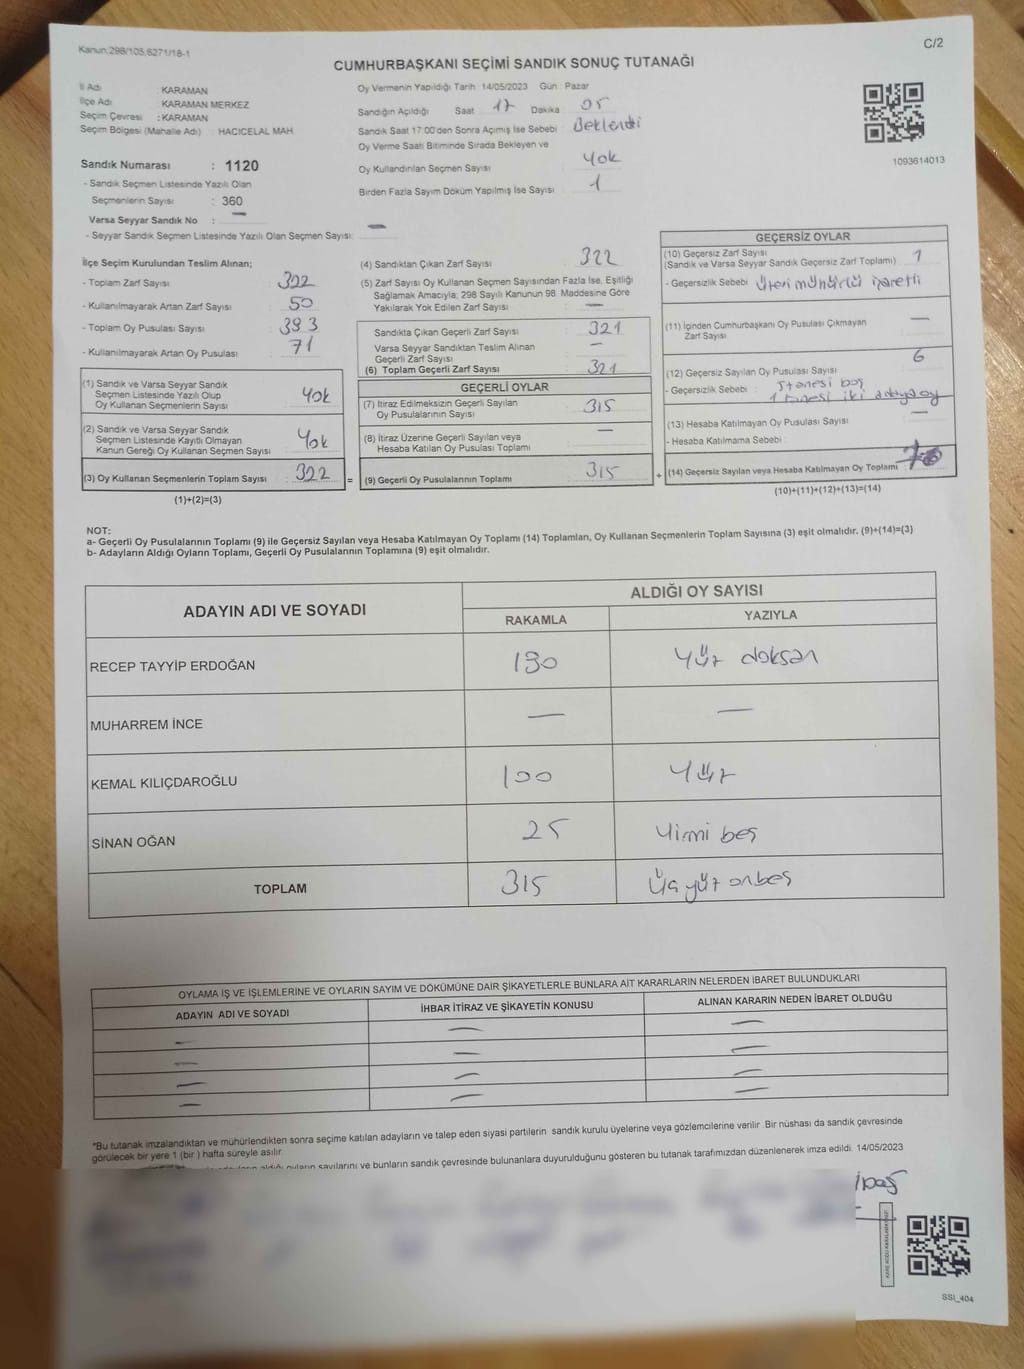 Kanun.298/105,6271/18-1
C/2
CUMHURBAŞKANI SEÇİMİ SANDIK SONUÇ TUTANAĞI
İl Adı : KARAMAN
İlçe Adı : KARAMAN MERKEZ
Seçim Çevresi : KARAMAN
Seçim Bölgesi (Mahalle Adı) : HACICELAL MAH.
Sandık Numarası : 1120
- Sandık Seçmen Listesinde Yazılı Olan
Seçmenlerin Sayısı : 360
Varsa Seyyar Sandık No : —
- Seyyar Sandık Seçmen Listesinde Yazılı Olan Seçmen Sayısı: —
Oy Vermenin Yapıldığı Tarih : 14/05/2023 Gün : Pazar
Sandığın Açıldığı Saat 17 Dakika 05
Sandık Saat 17:00'den Sonra Açımış İse Sebebi : Beklendi
Oy Verme Saati Bitiminde Sırada Bekleyen ve
Oy Kullandırılan Seçmen Sayısı : Yok
Birden Fazla Sayım Döküm Yapılmış İse Sayısı : 1
1093614013
İlçe Seçim Kurulundan Teslim Alınan;
- Toplam Zarf Sayısı :
- Kullanılmayarak Artan Zarf Sayısı : 50
- Toplam Oy Pusulası Sayısı : 393
- Kullanılmayarak Artan Oy Pusulası : 71
(1) Sandık ve Varsa Seyyar Sandık
Seçmen Listesinde Yazılı Olup
Oy Kullanan Seçmenlerin Sayısı : Yok
(2) Sandık ve Varsa Seyyar Sandık
Seçmen Listesinde Kayıtlı Olmayan
Kanun Gereği Oy Kullanan Seçmen Sayısı : Yok
(3) Oy Kullanan Seçmenlerin Toplam Sayısı : 322
(1)+(2)=(3)
(4) Sandıktan Çıkan Zarf Sayısı : 322
(5) Zarf Sayısı Oy Kullanan Seçmen Sayısından Fazla İse, Eşitliği
Sağlamak Amacıyla; 298 Sayılı Kanunun 98. Maddesine Göre
Yakılarak Yok Edilen Zarf Sayısı : —
Sandıkta Çıkan Geçerli Zarf Sayısı : 321
Varsa Seyyar Sandıktan Teslim Alınan
Geçerli Zarf Sayısı : —
(6) Toplam Geçerli Zarf Sayısı : 321
GEÇERLİ OYLAR
(7) İtiraz Edilmeksizin Geçerli Sayılan
Oy Pusulalarının Sayısı : 315
(8) İtiraz Üzerine Geçerli Sayılan veya
Hesaba Katılan Oy Pusulası Toplamı : —
= (9) Geçerli Oy Pusulalarının Toplamı : 315
GEÇERSİZ OYLAR
(10) Geçersiz Zarf Sayısı
(Sandık ve Varsa Seyyar Sandık Geçersiz Zarf Toplamı) : 1
- Geçersizlik Sebebi : Üzeri mühürlü işaretli
(11) İçinden Cumhurbaşkanı Oy Pusulası Çıkmayan
Zarf Sayısı : —
(12) Geçersiz Sayılan Oy Pusulası Sayısı : 6
- Geçersizlik Sebebi : 5 tanesi boş
1 tanesi iki adaya oy
(13) Hesaba Katılmayan Oy Pusulası Sayısı : —
- Hesaba Katılmama Sebebi :
+ (14) Geçersiz Sayılan veya Hesaba Katılmayan Oy Toplamı :
(10)+(11)+(12)+(13)=(14)
NOT:
a- Geçerli Oy Pusulalarının Toplamı (9) ile Geçersiz Sayılan veya Hesaba Katılmayan Oy Toplamı (14) Toplamları, Oy Kullanan Seçmenlerin Toplam Sayısına (3) eşit olmalıdır. (9)+(14)=(3)
b- Adayların Aldığı Oyların Toplamı, Geçerli Oy Pusulalarının Toplamına (9) eşit olmalıdır.
ADAYIN ADI VE SOYADI
ALDIĞI OY SAYISI
RAKAMLA YAZIYLA
RECEP TAYYİP ERDOĞAN 190 Yüz doksan
MUHARREM İNCE — —
KEMAL KILIÇDAROĞLU 100 Yüz
SİNAN OĞAN 25 Yirmi beş
TOPLAM 315 Üç yüz onbeş
OYLAMA İŞ VE İŞLEMLERİNE VE OYLARIN SAYIM VE DÖKÜMÜNE DAİR ŞİKAYETLERLE BUNLARA AİT KARARLARIN NELERDEN İBARET BULUNDUKLARI
ADAYIN ADI VE SOYADI İHBAR İTİRAZ VE ŞİKAYETİN KONUSU ALINAN KARARIN NEDEN İBARET OLDUĞU
— — —
— — —
— — —
— — —
*Bu tutanak imzalandıktan ve mühürlendikten sonra seçime katılan adayların ve talep eden siyasi partilerin sandık kurulu üyelerine veya gözlemcilerine verilir. Bir nüshası da sandık çevresinde
görülecek bir yere 1 (bir) hafta süreyle asılır.
oyların sayılarını ve bunların sandık çevresinde bulunanlara duyurulduğunu gösteren bu tutanak tarafımızdan düzenlenerek imza edildi. 14/05/2023
SSI_404